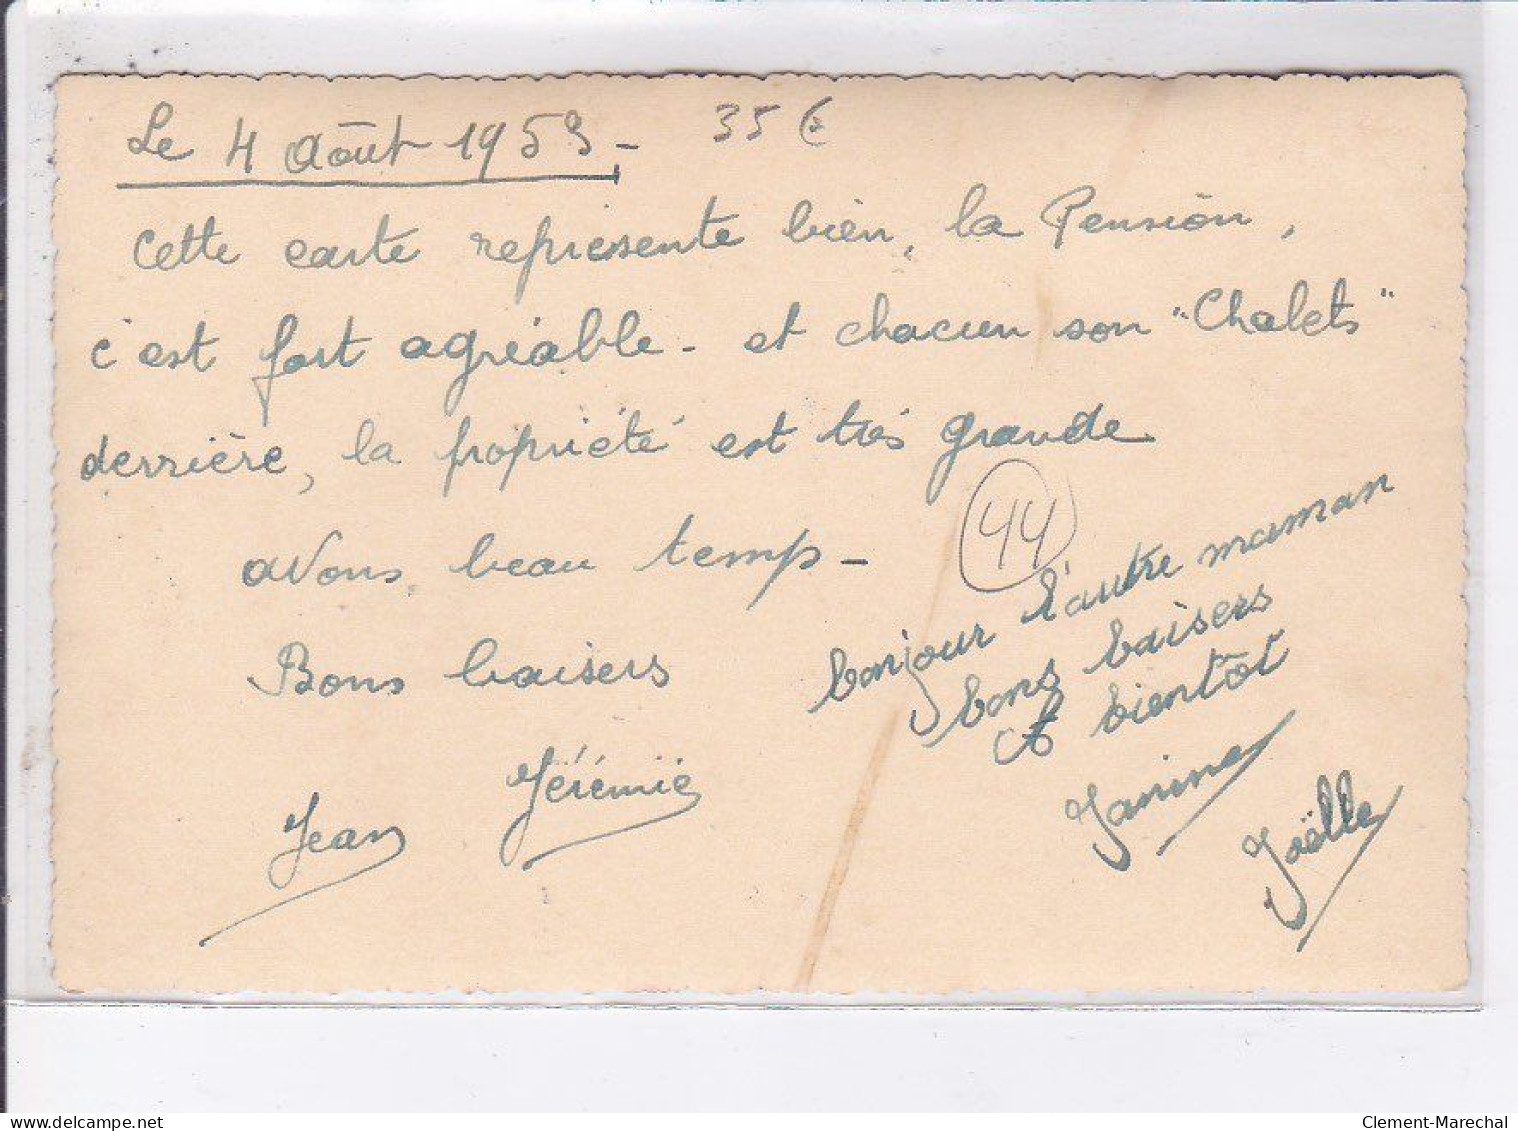 Le 4 Août 1953 -
35 €
Cette carte représente bien, la Pension,
c'est fort agréable - et chacun son "Chalets"
derrière, la propriété est très grande
avons beau temp -
44
Bons baisers
bonjour l'autre maman
bons baisers
A bientôt
Jean
Jérémie
Janine
Joëlle
delcampe.net
Clement-Marechal